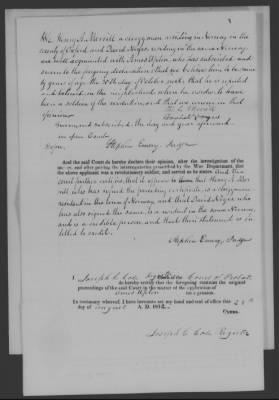 We Henry A. Merrill a clergyman residing in Norway in the
county of Oxford and David Noyes residing in the same Norway
are well acquainted with Amos Upton who has subscribed and
sworn to the foregoing declaration that we believe him to be
years of age, that he is reputed
and believed in the neighborhood where he resides to have
been a soldier of the revolution and that we concur in that
opinion
David Noyes
Sworn and subscribed the day and year aforesaid
in open Court
Before Stephen Emery, Judge
And the said Court do hereby declare their opinion, after the investigation of the
matter, and after putting the interrogatories prescribed by the War Department, that
the above applicant was a revolutionary soldier, and served as he states. And the
court further certifies, that it appears to them that Henry A. Mer-
rill who has signed the preceding certificate, is a clergyman
resident in the town of Norway, and that David Noyes who
has also signed the same, is a resident in the same Norway,
and is a credible person and that their statement is en-
titled to credit.
Stephen Emery, Judge
I Joseph G. Cole Register of the Court of Probate
do hereby certify that the foregoing contains the original
proceedings of the said Court in the matter of the application of
Amos Upton for a pension.
In testimony whereof, I have hereunto set my hand and seal of office this 28th
day of August A. D. 1832.
Joseph G. Cole Register